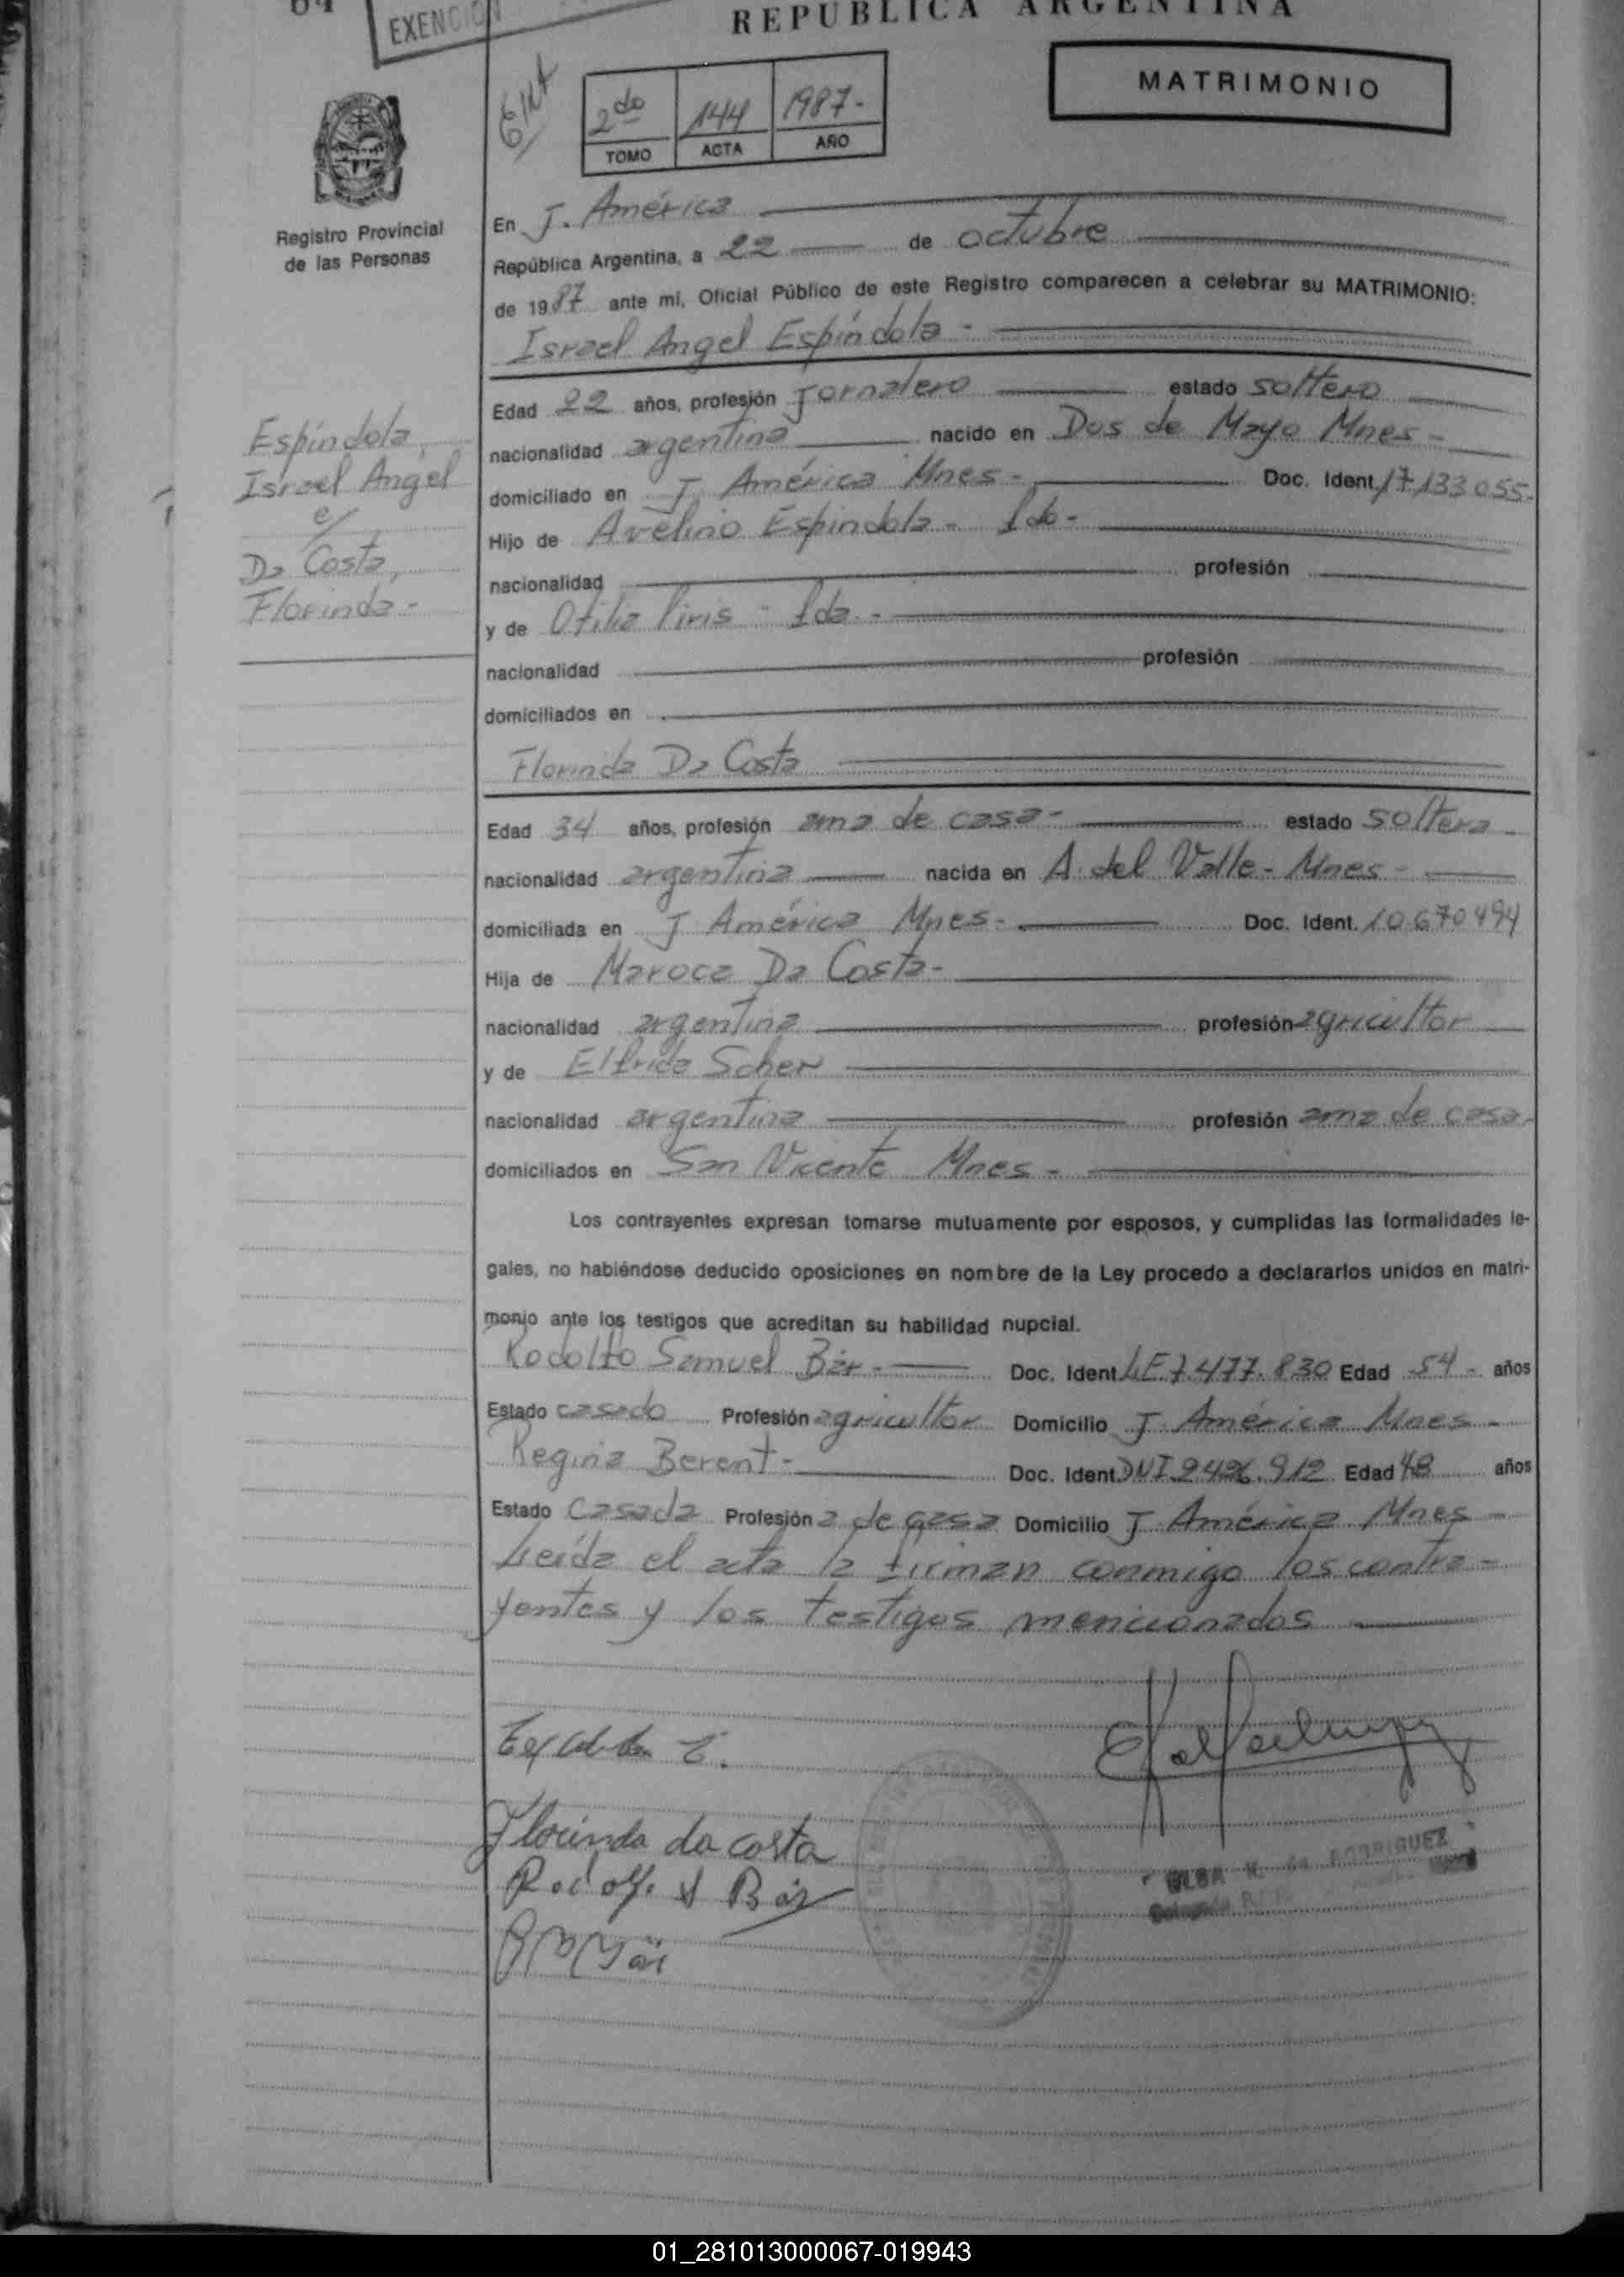 64
EXENCION
REPUBLICA ARGENTINA
MATRIMONIO
2do 144 1987.-
TOMO ACTA AÑO
Registro Provincial
de las Personas
En J. América
República Argentina, a 22 de octubre
de 1987 ante mí, Oficial Público de este Registro comparecen a celebrar su MATRIMONIO:
Israel Angel Espíndola -
Edad 22 años, profesión Jornalero estado soltero
nacionalidad argentina nacido en Dos de Mayo Mnes -
domiciliado en J. América Mnes - Doc. Ident. 17.133.055-
Hijo de Avelino Espindola - fdo -
nacionalidad profesión
y de Otilia Piris - fda. -
nacionalidad profesión
domiciliados en
Espíndola,
Israel Angel
c/
Da Costa,
Florinda -
Florinda Da Costa
Edad 34 años, profesión ama de casa - estado soltera -
nacionalidad argentina nacida en A. del Valle - Mnes -
domiciliada en J América Mnes - Doc. Ident. 10.670.494
Hija de Maroca Da Costa -
nacionalidad argentina profesión agricultor
y de Elfrida Scher
nacionalidad argentina profesión ama de casa -
domiciliados en San Vicente Mnes -
Los contrayentes expresan tomarse mutuamente por esposos, y cumplidas las formalidades le-
gales, no habiéndose deducido oposiciones en nombre de la Ley procedo a declararlos unidos en matri-
monio ante los testigos que acreditan su habilidad nupcial.
Rodolfo Samuel Bär - Doc. Ident. LE.7.477.830 Edad 54 - años
Estado casado Profesión agricultor Domicilio J América Mnes -
Regina Berent - Doc. Ident. DNI 9.426.912 Edad 48 años
Estado Casada Profesión a de casa Domicilio J América Mnes -
Leída el acta la firman conmigo los contra-
yentes y los testigos mencionados
Florinda da costa
Rodolfo S Bär
RODRIGUEZ
01_281013000067-019943